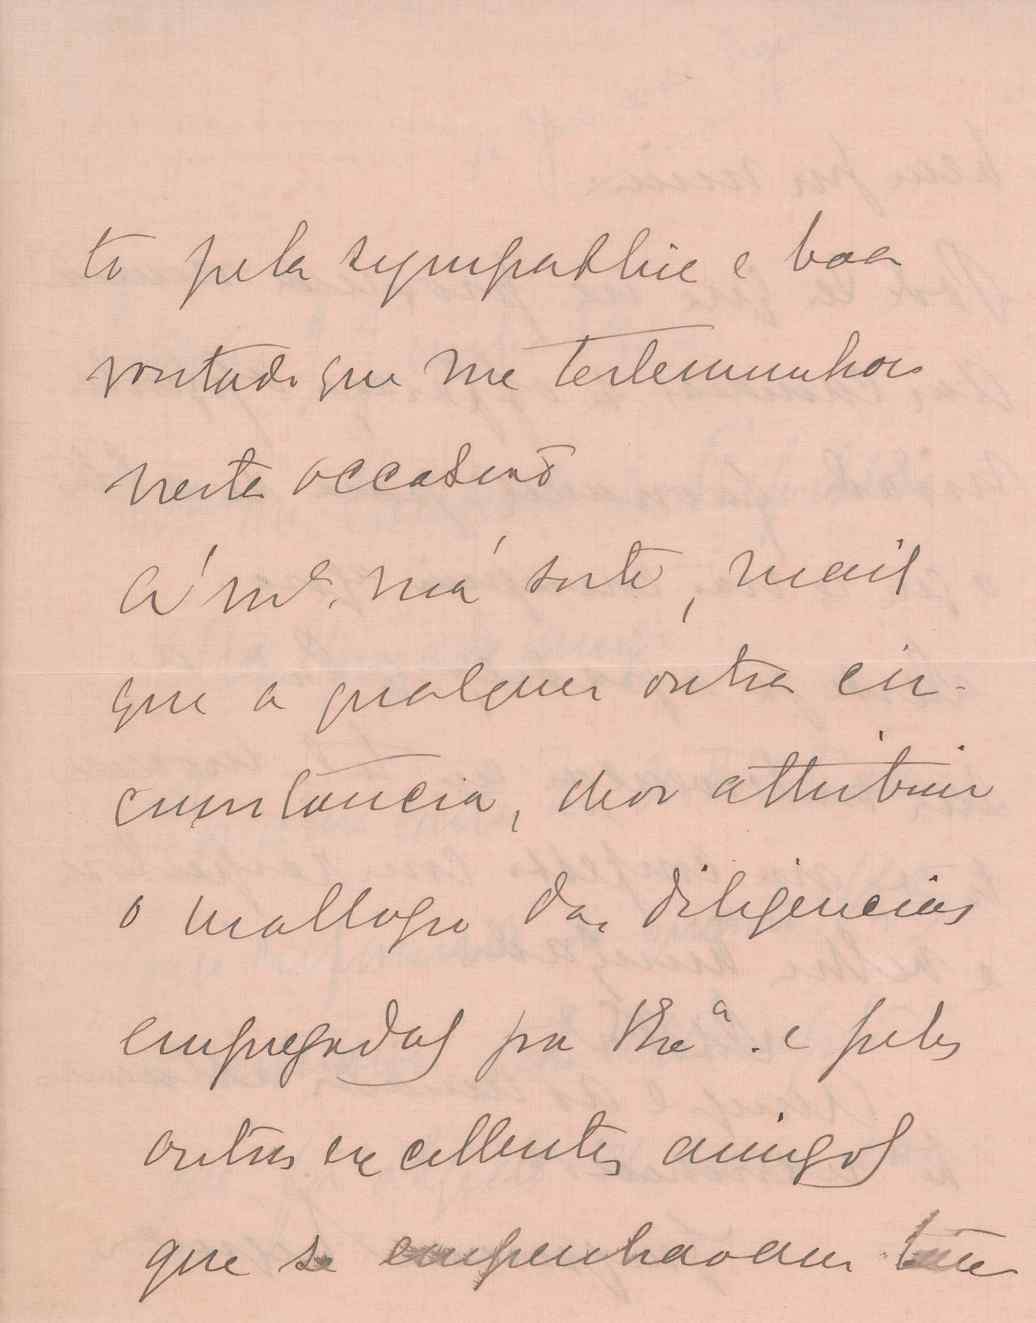 to pela sympathia e boa
vontade que me testemunhou
nesta occasião
A' mª. má sorte, mais
que a qualquer outra cir-
cumstancia, devo attribuir
o mallogro das diligencias
empregadas por Vxª. e pelos
outros excellentes amigos
que se empenhavam